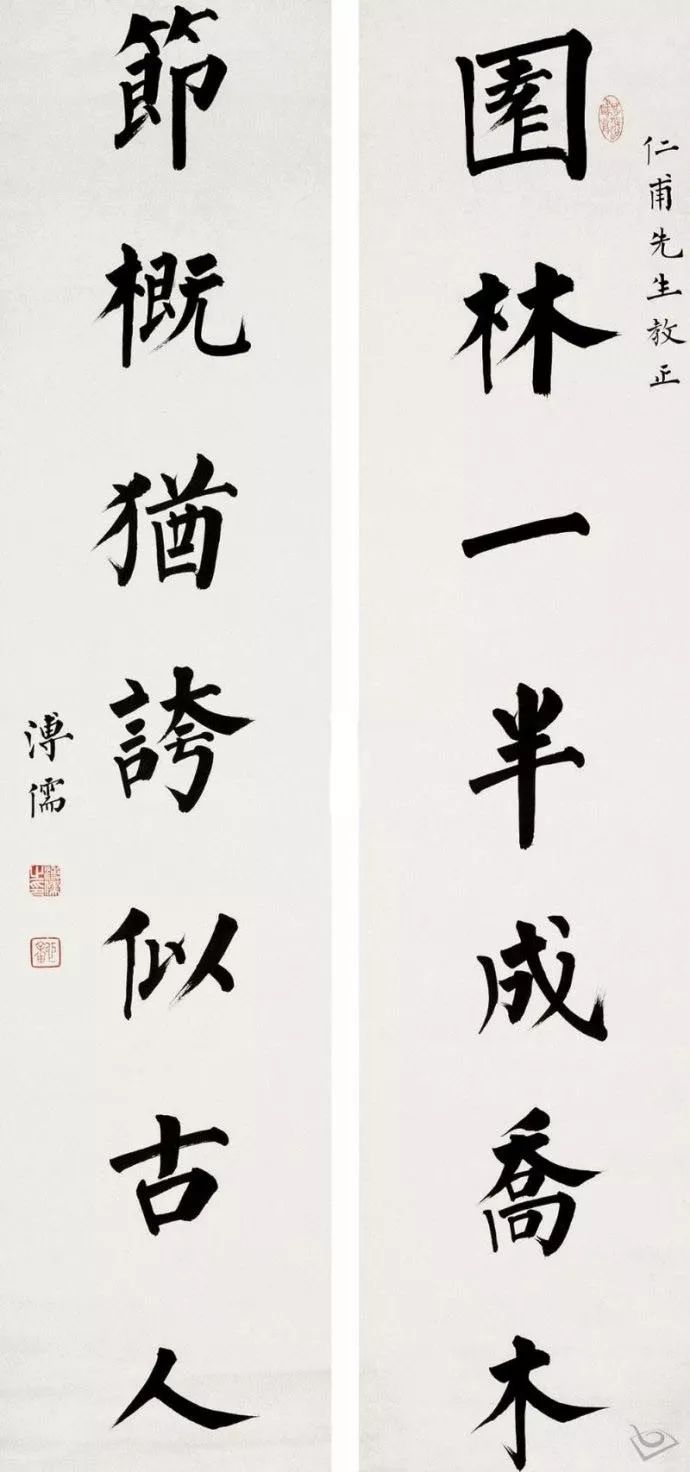 仁甫先生教正
園林一半成喬木
節概猶誇似古人
溥儒